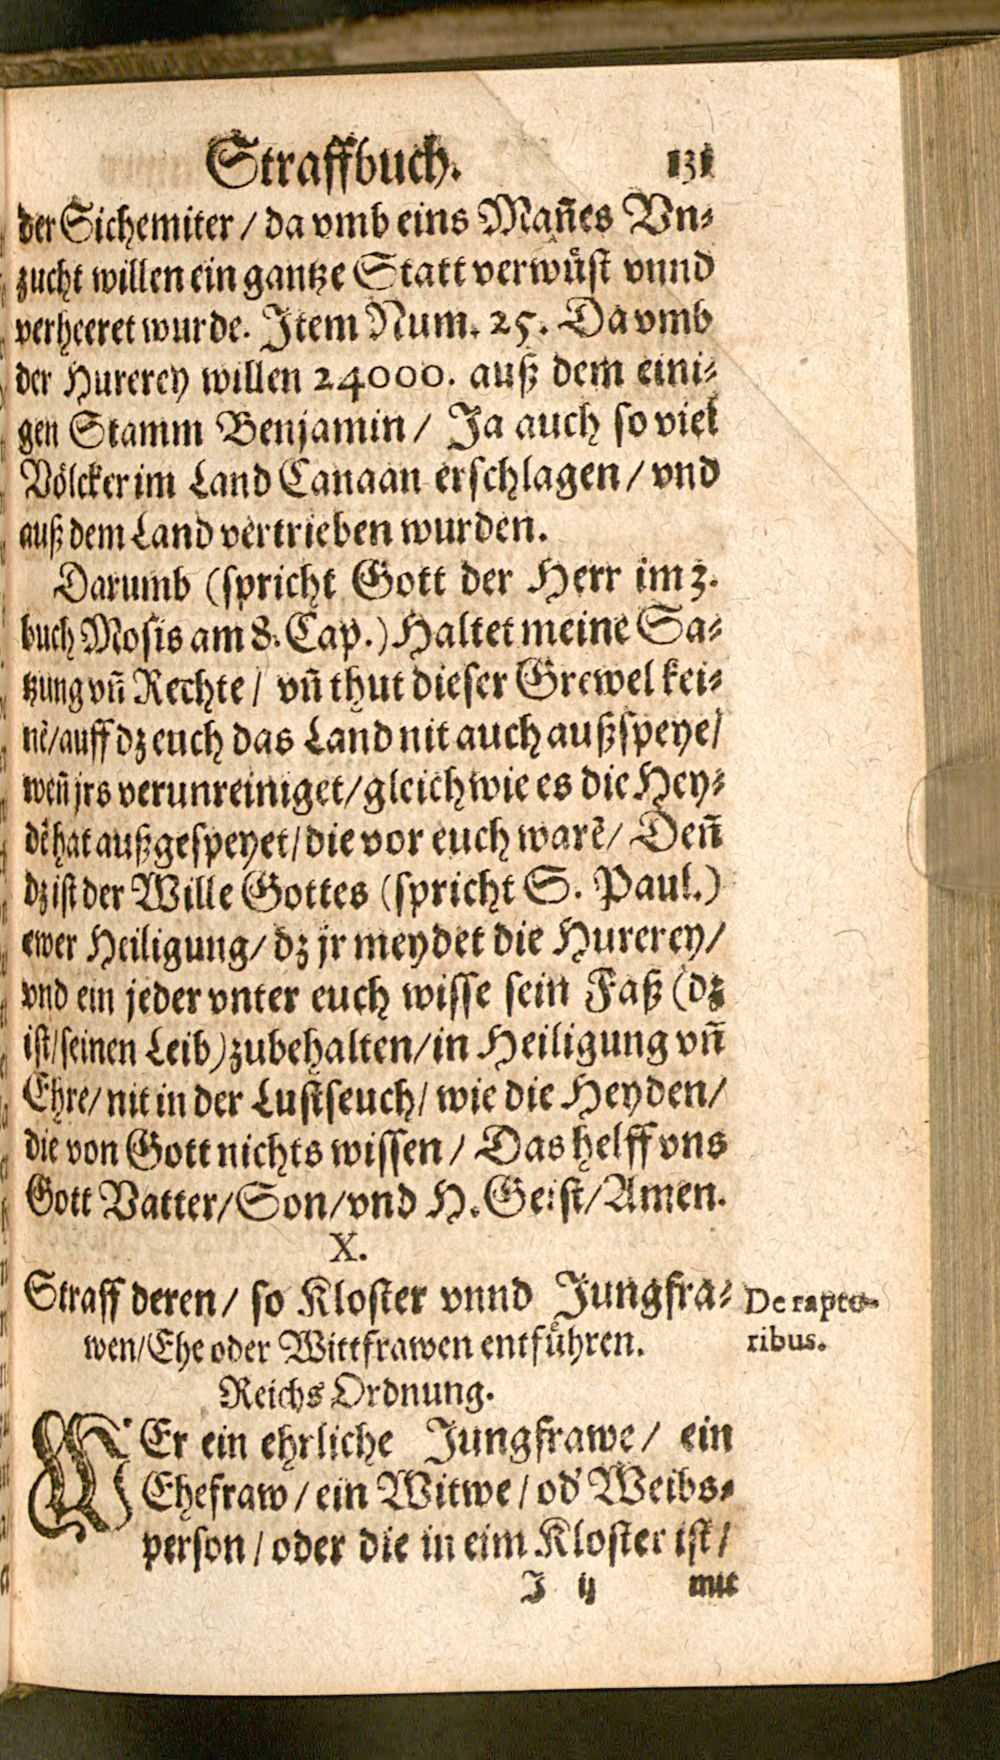 Straffbuch. 131
der Sichemiter / da vmb eins Mañes Vn⸗
zucht willen ein gantze Statt verwuͤst vnnd
verheeret wurde. Item Num. 25. Da vmb
der Hurerey willen 24000. auß dem eini⸗
gen Stamm Benjamin / Ja auch so viel
Voͤlcker im Land Canaan erschlagen / vnd
auß dem Land vertrieben wurden.
Darumb (spricht Gott der Herr im 3.
buch Mosis am 8. Cap.) Haltet meine Sa⸗
tzung vñ Rechte / vñ thut dieser Grewel kei⸗
nẽ / auff dz euch das Land nit auch außspeye /
weñ jrs verunreiniget / gleich wie es die Hey⸗
dẽ hat außgespeyet / die vor euch warẽ / Deñ
dz ist der Wille Gottes (spricht S. Paul.)
ewer Heiligung / dz jr meydet die Hurerey /
vnd ein jeder vnter euch wisse sein Faß (dz
ist / seinen Leib) zubehalten / in Heiligung vñ
Ehre / nit in der Lustseuch / wie die Heyden /
die von Gott nichts wissen / Das helff vns
Gott Vatter / Son / vnd H. Geist / Amen.
X.
Straff deren / so Kloster vnnd Jungfra⸗
wen / Ehe oder Wittfrawen entfuͤhren.
De rapto-
ribus.
Reichs Ordnung.
WEr ein ehrliche Jungfrawe / ein
Ehefraw / ein Witwe / od' Weibs⸗
person / oder die in eim Kloster ist /
J ij mit